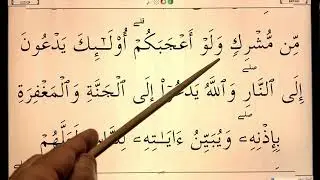 مِّن مُّشْرِكٍ وَلَوْ أَعْجَبَكُمْ ۗ أُو۟لَـٰٓئِكَ يَدْعُونَ
إِلَى ٱلنَّارِ ۖ وَٱللَّهُ يَدْعُوٓا۟ إِلَى ٱلْجَنَّةِ وَٱلْمَغْفِرَةِ
بِإِذْنِهِۦ ۖ وَيُبَيِّنُ ءَايَـٰتِهِۦ لَعَلَّهُمْ